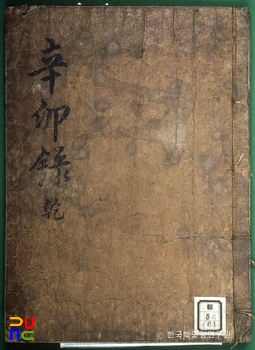 辛卯錄
乾
© 한국학중앙연구원